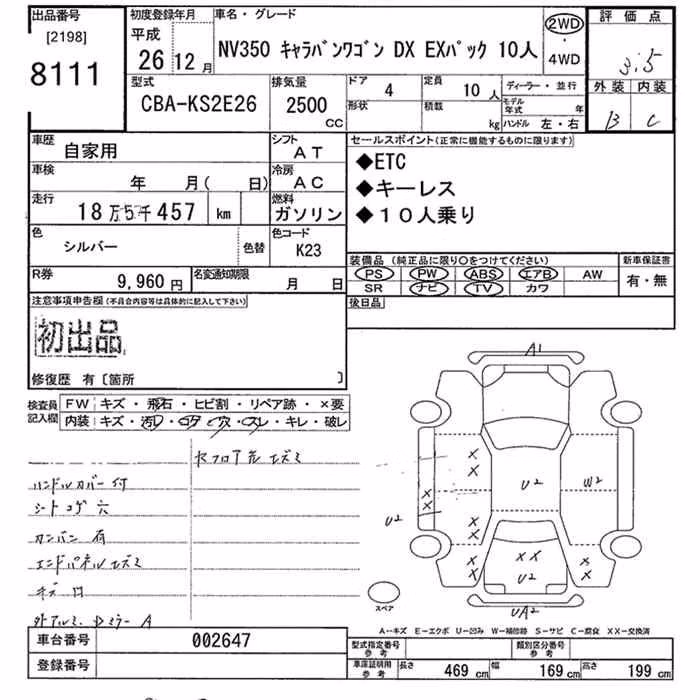 出品番号
[2198]
8111
初度登録年月
平成
26 12 月
車名・グレード
NV350 ｷｬﾗﾊﾞﾝﾜｺﾞﾝ DX EXﾊﾟｯｸ 10人
2WD
・
4WD
評価点
3.5
外装 内装
B C
型式
CBA-KS2E26
排気量
2500 CC
ドア
4
定員
10 人
形状
積載
kg
ディーラー・並行
モデル年式 年
ハンドル 左・右
車歴
自家用
シフト
AT
車検
年 月( 日)
冷房
AC
走行
18万5千457 km
燃料
ガソリン
色
シルバー
色替
色コード
K23
R券
9,960円
名変通知期限
月 日
セールスポイント(正常に機能するものに限ります)
◆ETC
◆キーレス
◆10人乗り
装備品 (純正品に限り○をつけてください)
PS PW ABS エアB AW
SR ナビ TV カワ
新車保証書
有・無
後日品
注意事項申告欄(不具合内容等は具体的に記入して下さい)
初出品
修復歴 有〔箇所 〕
検査員記入欄
FW キズ・飛石・ヒビ割・リペア跡・×要
内装 キズ・汚レ・コゲ・穴・スレ・キレ・破レ
ハンドルカバー付
シートコゲ穴
カンバン有
エンドパネルユガミ
A1
U2
W2
U2
X X
X X
X X
X X
X X
X X
U2
X X
UA2
スペア
A－キズ E－エクボ U－凹み W－補修跡 S－サビ C－腐食 XX－交換済
車台番号
002647
登録番号
型式指定番号
参考
類別区分番号
参考
車庫証明用
参考
長さ 469 cm 幅 169 cm 高さ 199 cm